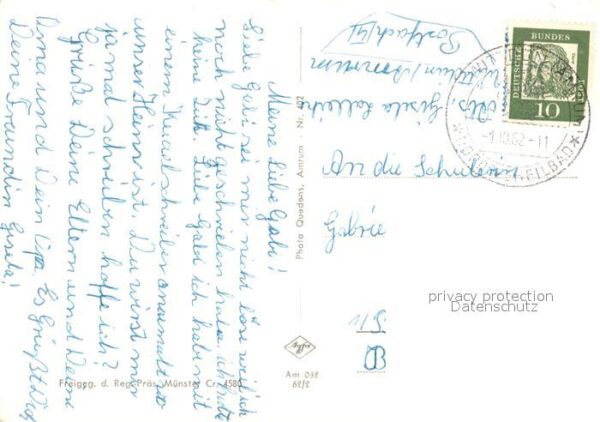 Meine liebe Gabi!
Liebe Gabi sei mir nicht böse weil ich
noch nicht geschrieben habe ich hatte
keine Zeit. Liebe Gabi ich habe mit
einem Kugelschreiber an
unser Heim ist. Du wirst mir
ja mal schreiben hoffe ich?
Grüße Deine Eltern und Deine
Oma und Dein Opa. Es Grüßt Dich
Deine Freundin Gisela!
Freigeg. d. Reg. Präs. Münster Cr. 4580
Photo Quedens, Amrum - Nr. 402
Agfa
Am 032
62/2
Abs. Gisela
Wittdün/Amrum
Postfach
DEUTSCHE
BUNDES
10
1961
-1.10.62-11
An die Schülerin
Gabriele
privacy protection
Datenschutz